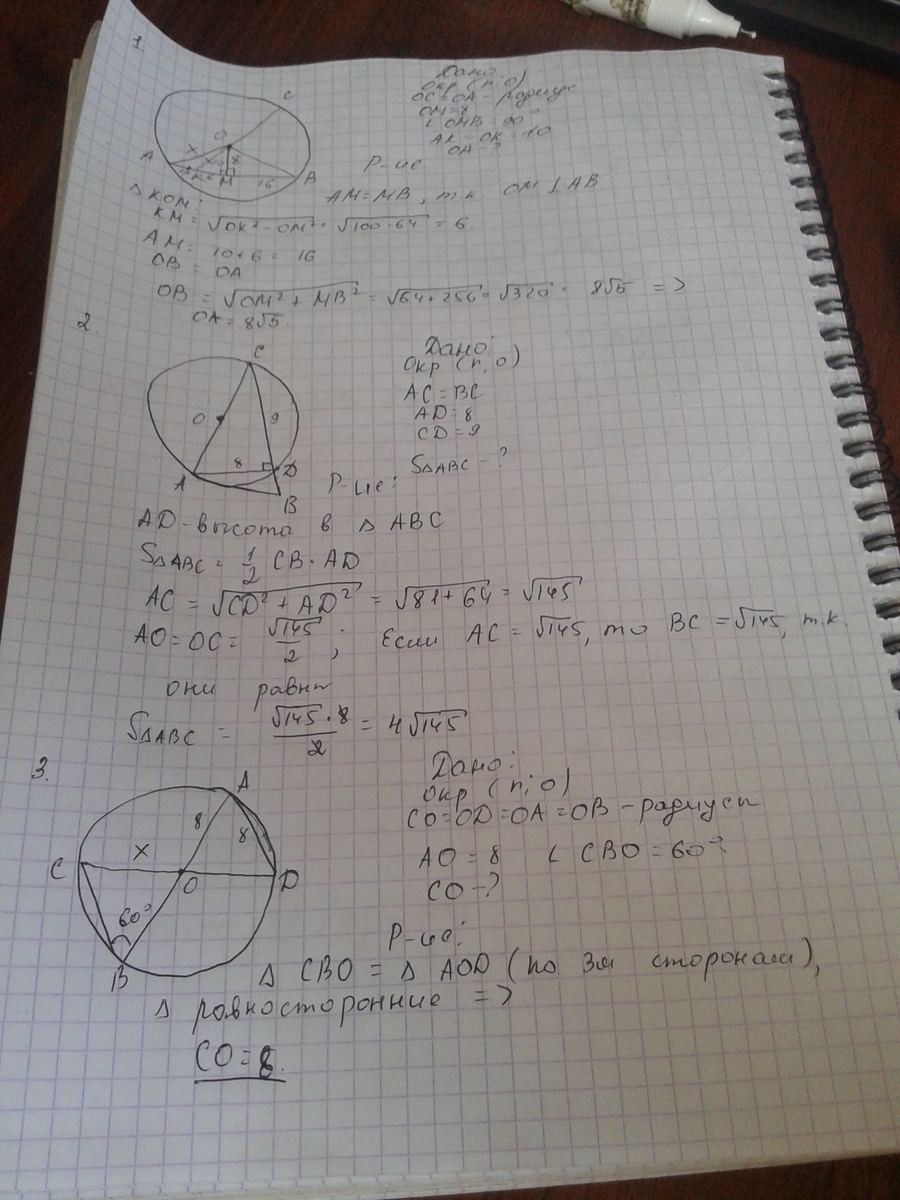 1
Дано:
Окр (r, о)
OC=OA - радиус
OM=8
∠ OMB = 90°
AK = OK = 10
OA = ?
C
O
X
A
K
6
M
16
B
Р-ие
△ KOM:
AM=MB, т.к. OM ⊥ AB
KM = √OK² - OM² = √100-64 = 6.
AM = 10+6 = 16
OB = OA
OB = √OM² + MB² = √64+256 = √320 = 8√5 =>
OA = 8√5.
2.
C
O
9
8
A
D
B
Дано:
Окр (r, о)
AC = BC
AD = 8
CD = 9
S△ABC - ?
Р-ие:
AD - высота в △ ABC
S△ABC = 1/2 CB · AD
AC = √CD² + AD² = √81+64 = √145
AO = OC = √145/2 ; Если AC = √145, то BC = √145, т.к.
они равны
S△ABC = √145 · 8/2 = 4√145
3.
A
8
8
C
X
O
D
60°
B
Дано:
Окр (r; о)
CO=OD=OA=OB - радиусы
AO = 8 ∠ CBO = 60°
CO - ?
Р-ие:
△ CBO = △ AOD (по 3м сторонам),
△ равносторонние =>
CO = 8.